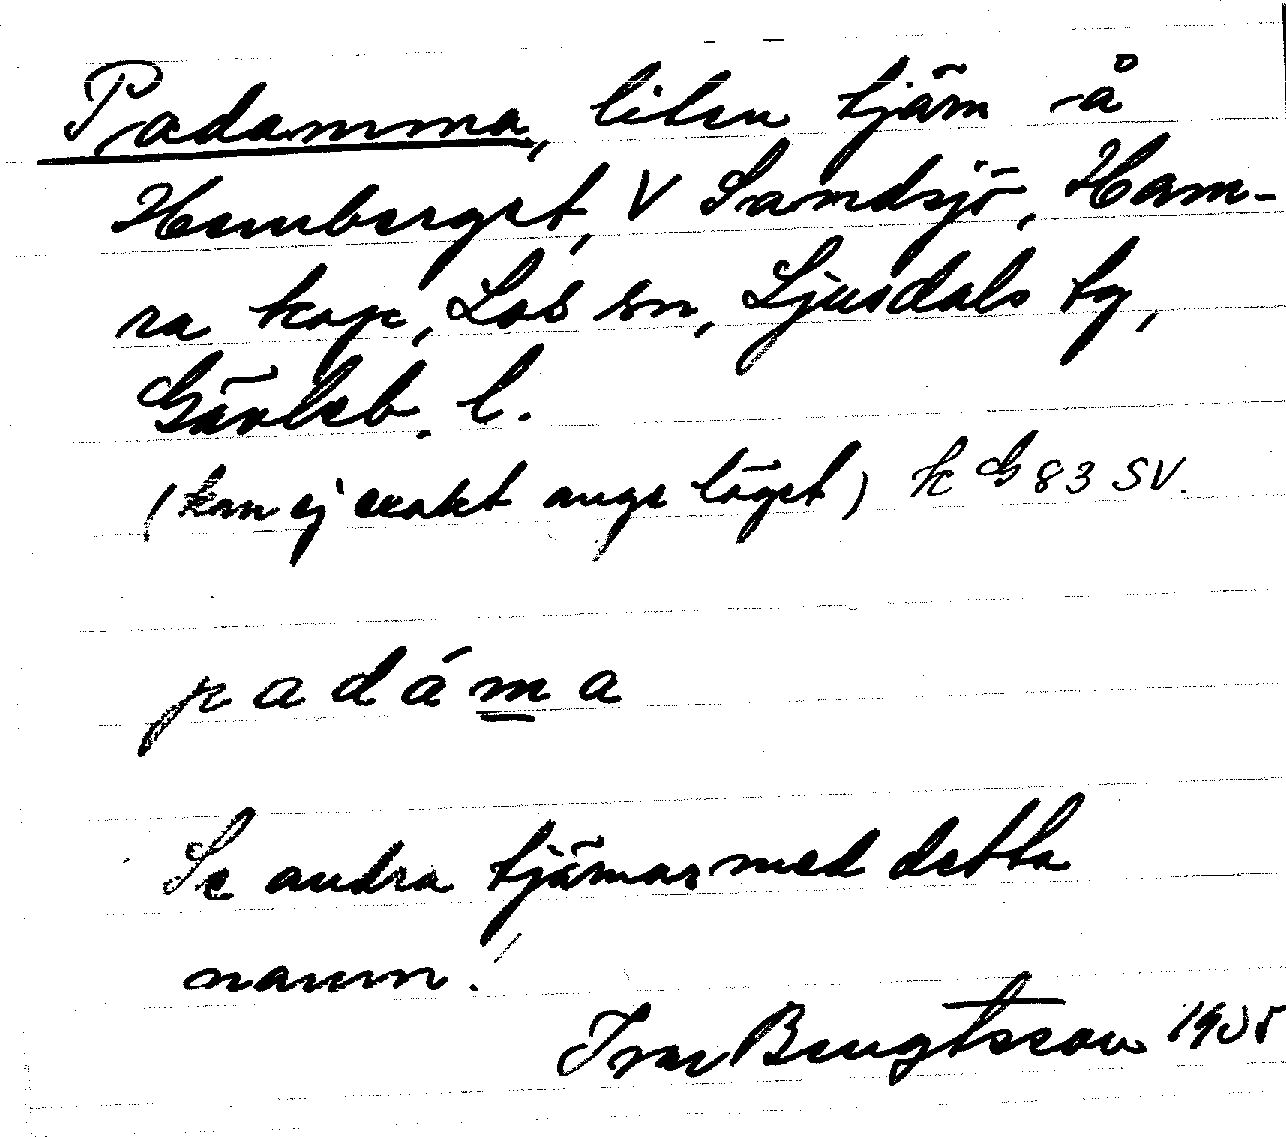 Padamma, liten tjärn å
Hemberget, V Sandsjö, Ham-
ra kap, Los sn, Ljusdals tg,
Gävleb. l.
(kan ej exakt ange läget) K G 83 SV.
padáma
Se andra tjärnar med detta
namn!
Ivar Bengtsson 1935